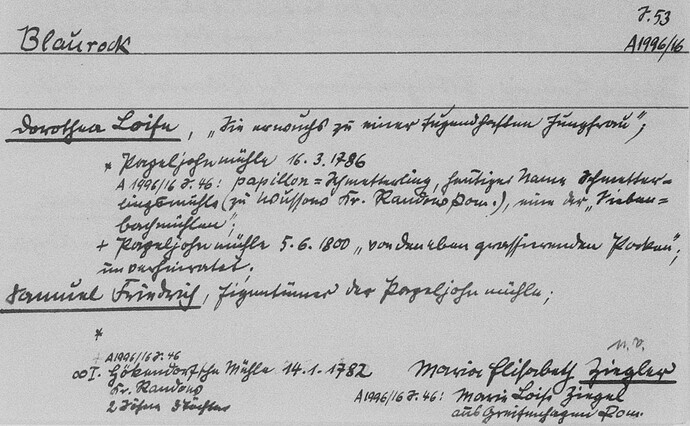 J. 53
Blaurock A 1996/16
Dorothea Loise, „Sie erwuchs zu einer tugendhaften Jungfrau";
* Pageljohnmühle 16.3.1786
A 1996/16 J. 46: papillon = Schmetterling, heutiger Name Schmetter-
lingsmühle (zu Wussow Kr. Randow Pom.), eine der „Sieben-
bachmühlen";
+ Pageljohnmühle 5.6.1800 „von den eben grassierenden Pocken";
unverheiratet;
Samuel Friedrich, Eigentümer der Pageljohnmühle;
*
+ A 1996/16 J. 46
∞ I. Hökendorfsche Mühle 14.1.1782 Maria Elisabeth Ziegler
Kr. Randow A 1996/16 J. 46: Marie Loise Ziegel
2 Söhne 2 Töchter aus Greifenhagen Pom.